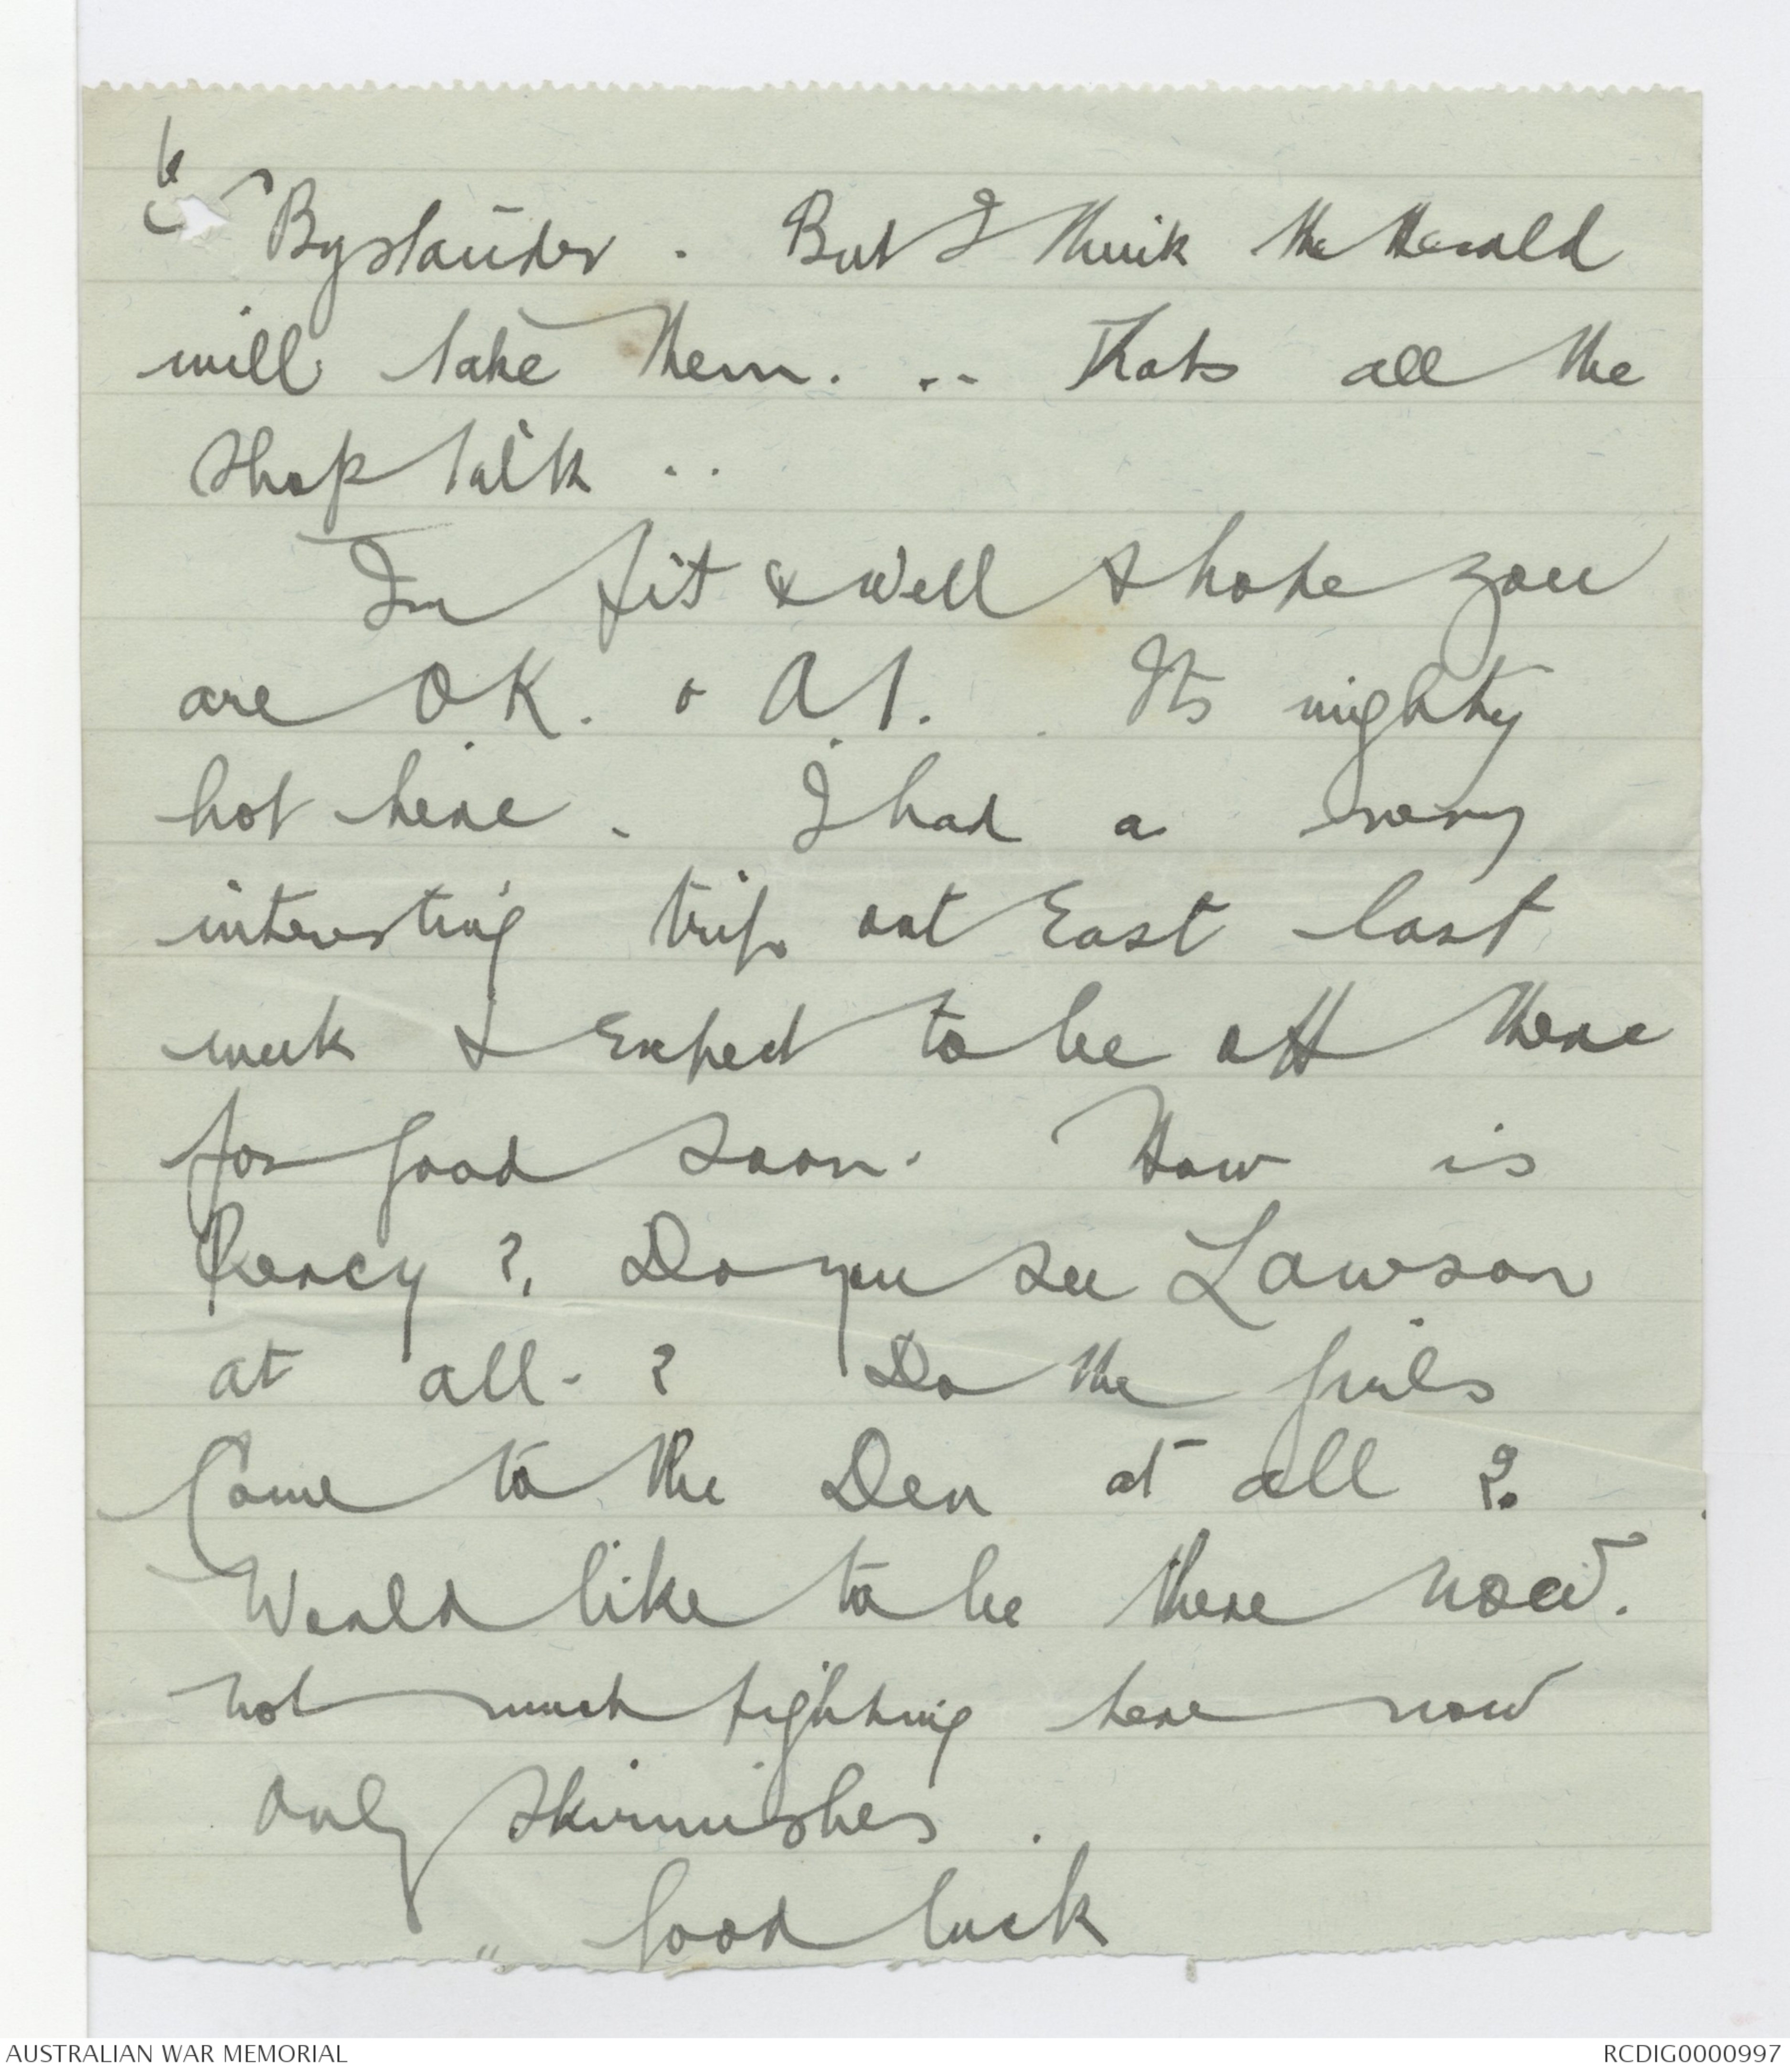 Bystander. But I think the Herald
will take them. .. Thats all the
shop talk ..
Im fit & well & hope you
are OK. & A1. Its mighty
hot here. I had a very
interesting trip out East last
week & Expect to be off there
for good soon. How is
Percy? Do you see Lawson
at all-? Do the girls
Come to the Den at all?
Would like to be there now.
not much fighting here now
only skirmishes.
Good luck
AUSTRALIAN WAR MEMORIAL
RCDIG0000997